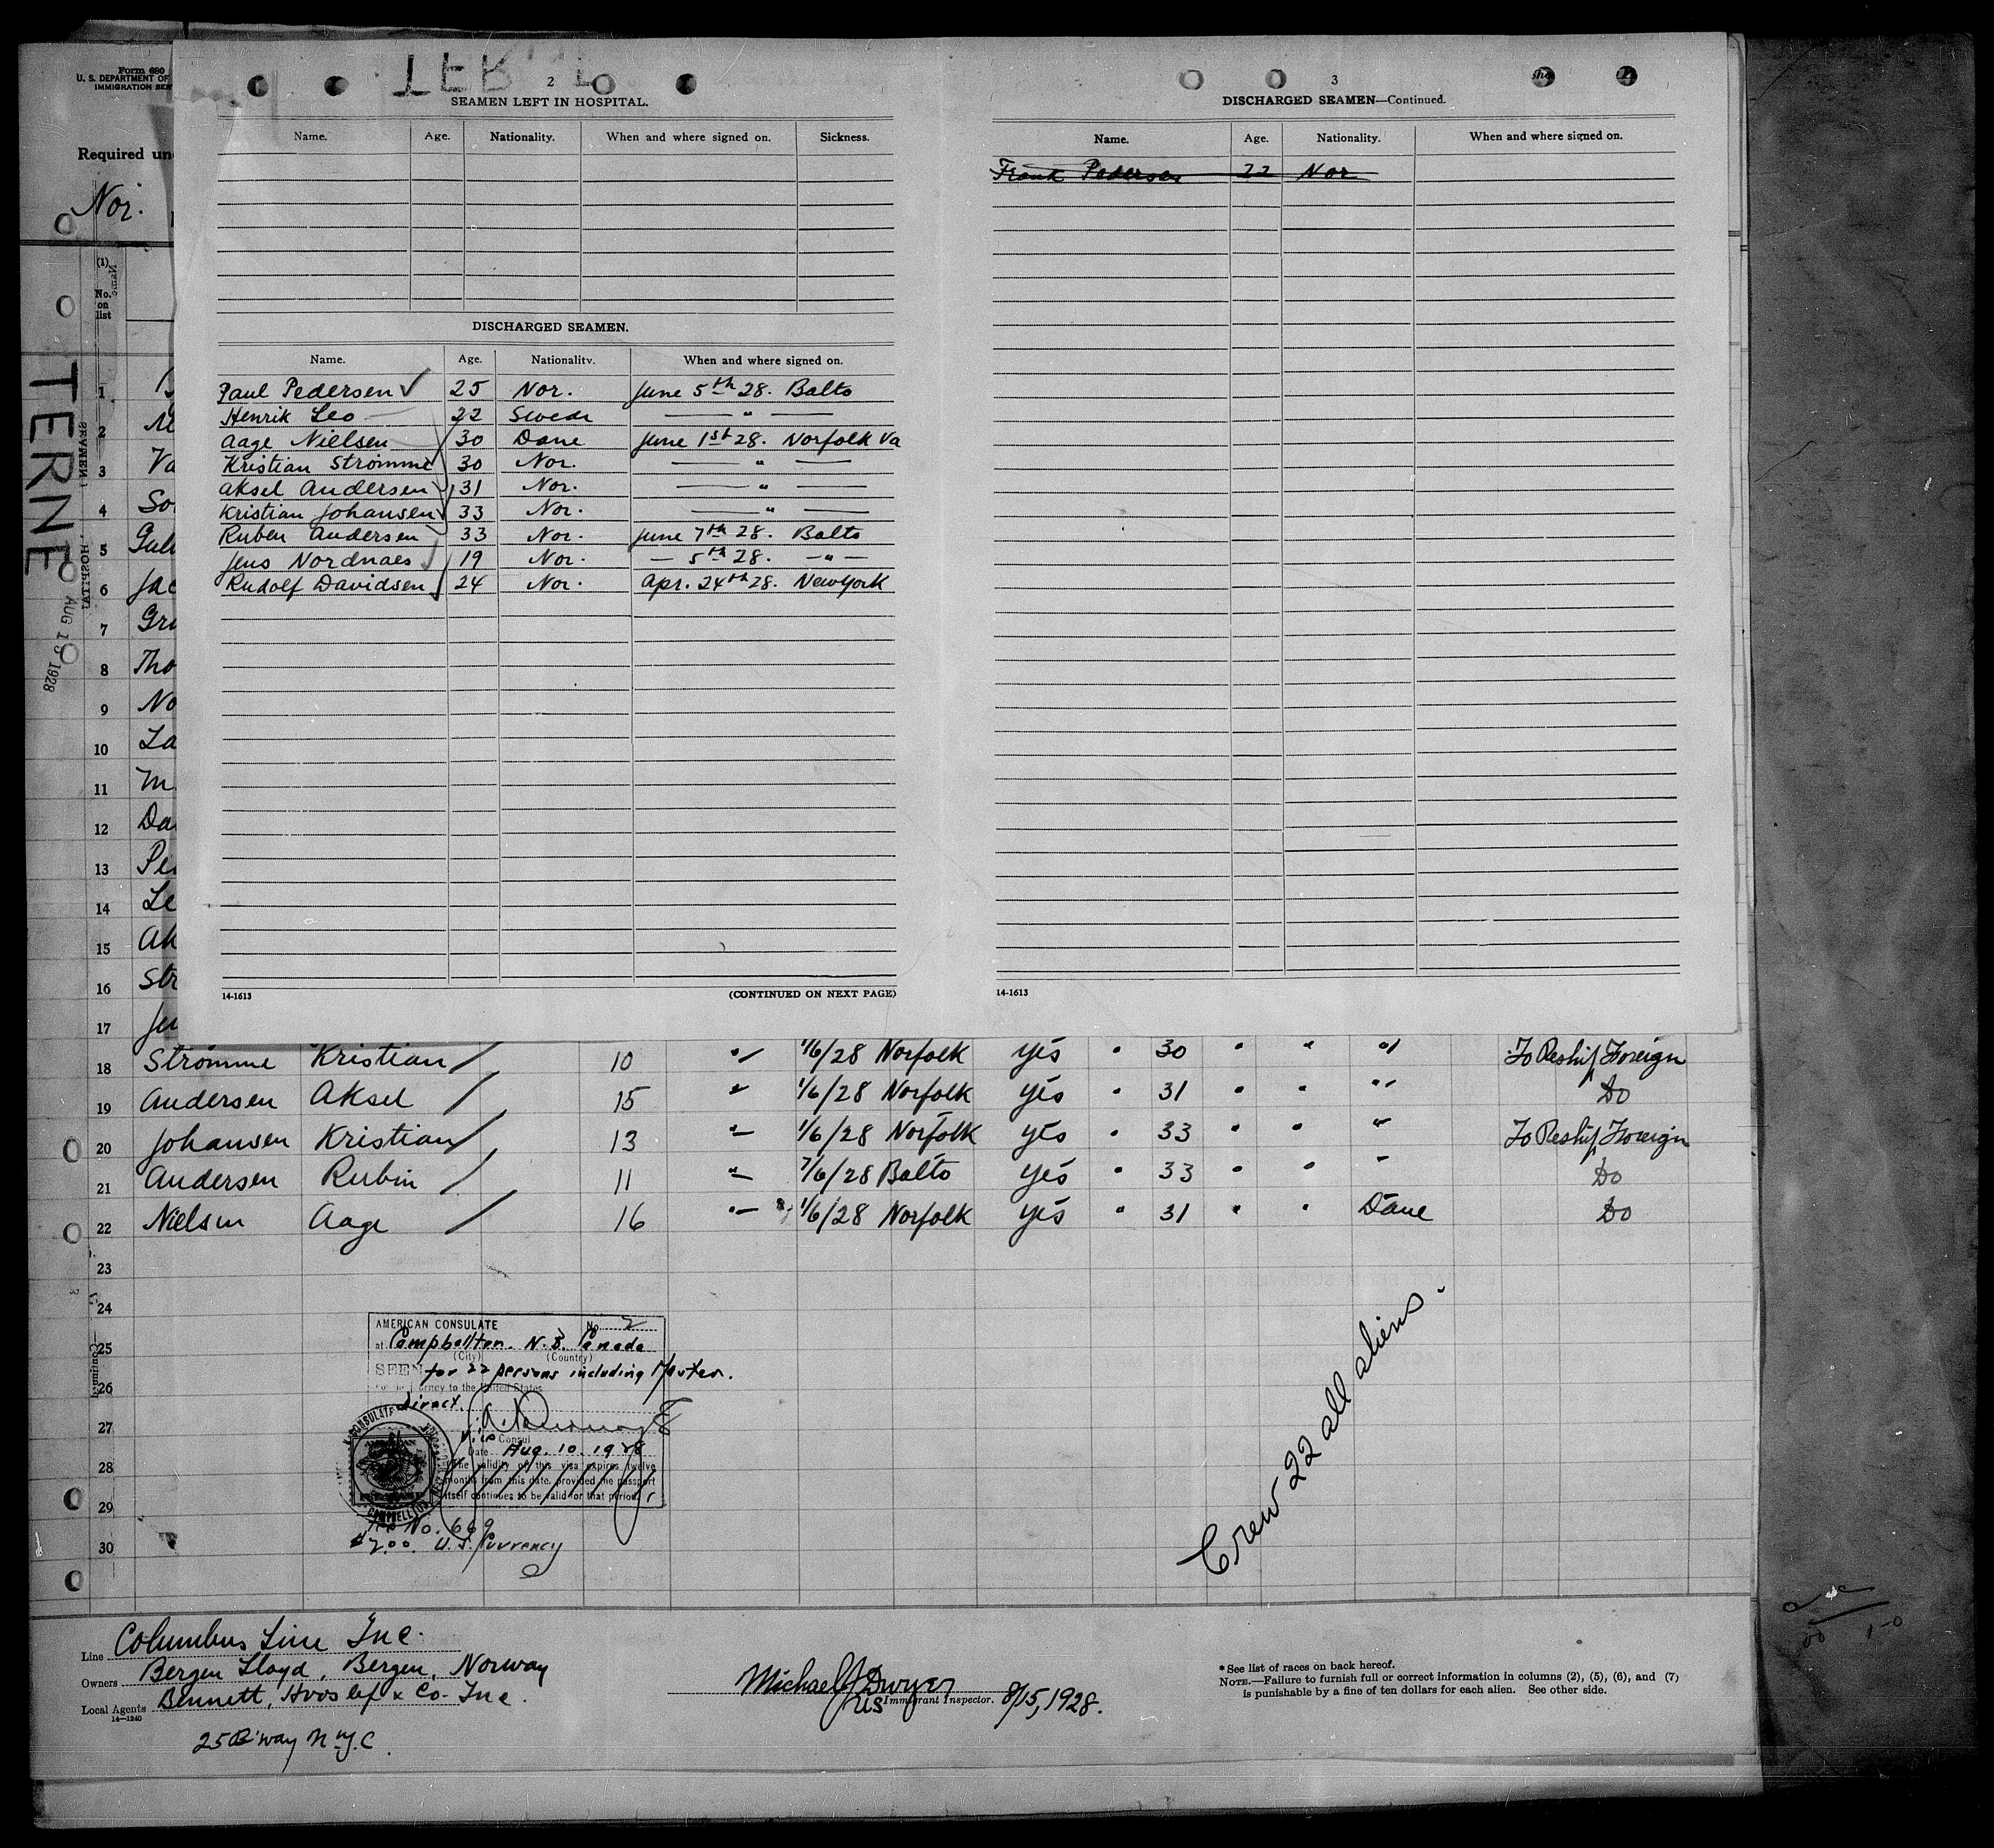 Form 680
U. S. DEPARTMENT OF
IMMIGRATION SER
Required un
Nor.
(1)
No.
on
list
TERNE
AUG 15 1928
2
SEAMEN LEFT IN HOSPITAL.
Name. Age. Nationality. When and where signed on. Sickness.
DISCHARGED SEAMEN.
Name. Age. Nationality. When and where signed on.
Paul Pedersen ✓ 25 Nor. June 5th 28. Balto
Henrik Leo — 22 Swede — " —
Aage Nielsen 30 Dane June 1st 28. Norfolk Va
Kristian Strömme 30 Nor. — " —
Aksel Andersen 31 Nor. — " —
Kristian Johansen 33 Nor. — " —
Ruben Andersen 33 Nor. June 7th 28. Balto
Jens Nordnaes 19 Nor. — 5th 28. — " —
Rudolf Davidsen 24 Nor. Apr. 24th 28. New York
14-1613 (CONTINUED ON NEXT PAGE)
3
DISCHARGED SEAMEN—Continued.
Name. Age. Nationality. When and where signed on.
Frank Pedersen 22 Nor
14-1613
1
2
3 Va
4 So
5
6 Jac
7
8 Tho
9 No
10 La
11 M
12 Da
13
14 Le
15 Ak
16 Str
17
18 Strömme Kristian / 10 " 1/6/28 Norfolk yes " 30 " " " To Reship Foreign
19 Andersen Aksel / 15 " 1/6/28 Norfolk yes " 31 " " " Do
20 Johansen Kristian / 13 " 1/6/28 Norfolk yes " 33 " " " To Reship Foreign
21 Andersen Rubin / 11 " 7/6/28 Balto yes " 33 " " " Do
22 Nielsen Aage / 16 " 1/6/28 Norfolk yes " 31 " " Dane Do
23
24
25
26
27
28
29
30
AMERICAN CONSULATE No. 2
at Campbellton. N.B. Canada
(City) (Country)
SEEN for 22 persons including Master.
For the journey to the United States
direct.
Vice Consul
Date Aug. 10. 1928
The validity of this visa expires twelve
months from this date, provided the passport
itself continues to be valid for that period.
No. 669
$2.00. U.S. Currency
Crew 22 all aliens.
Line Columbus Line Inc.
Owners Bergen Lloyd, Bergen, Norway
Local Agents Bennett, Hvoslef & Co. Inc.
14—1240
25 B'way N.Y.C.
Michael J Dwyer
US Immigrant Inspector. 8/15, 1928.
* See list of races on back hereof.
NOTE.—Failure to furnish full or correct information in columns (2), (5), (6), and (7)
is punishable by a fine of ten dollars for each alien. See other side.